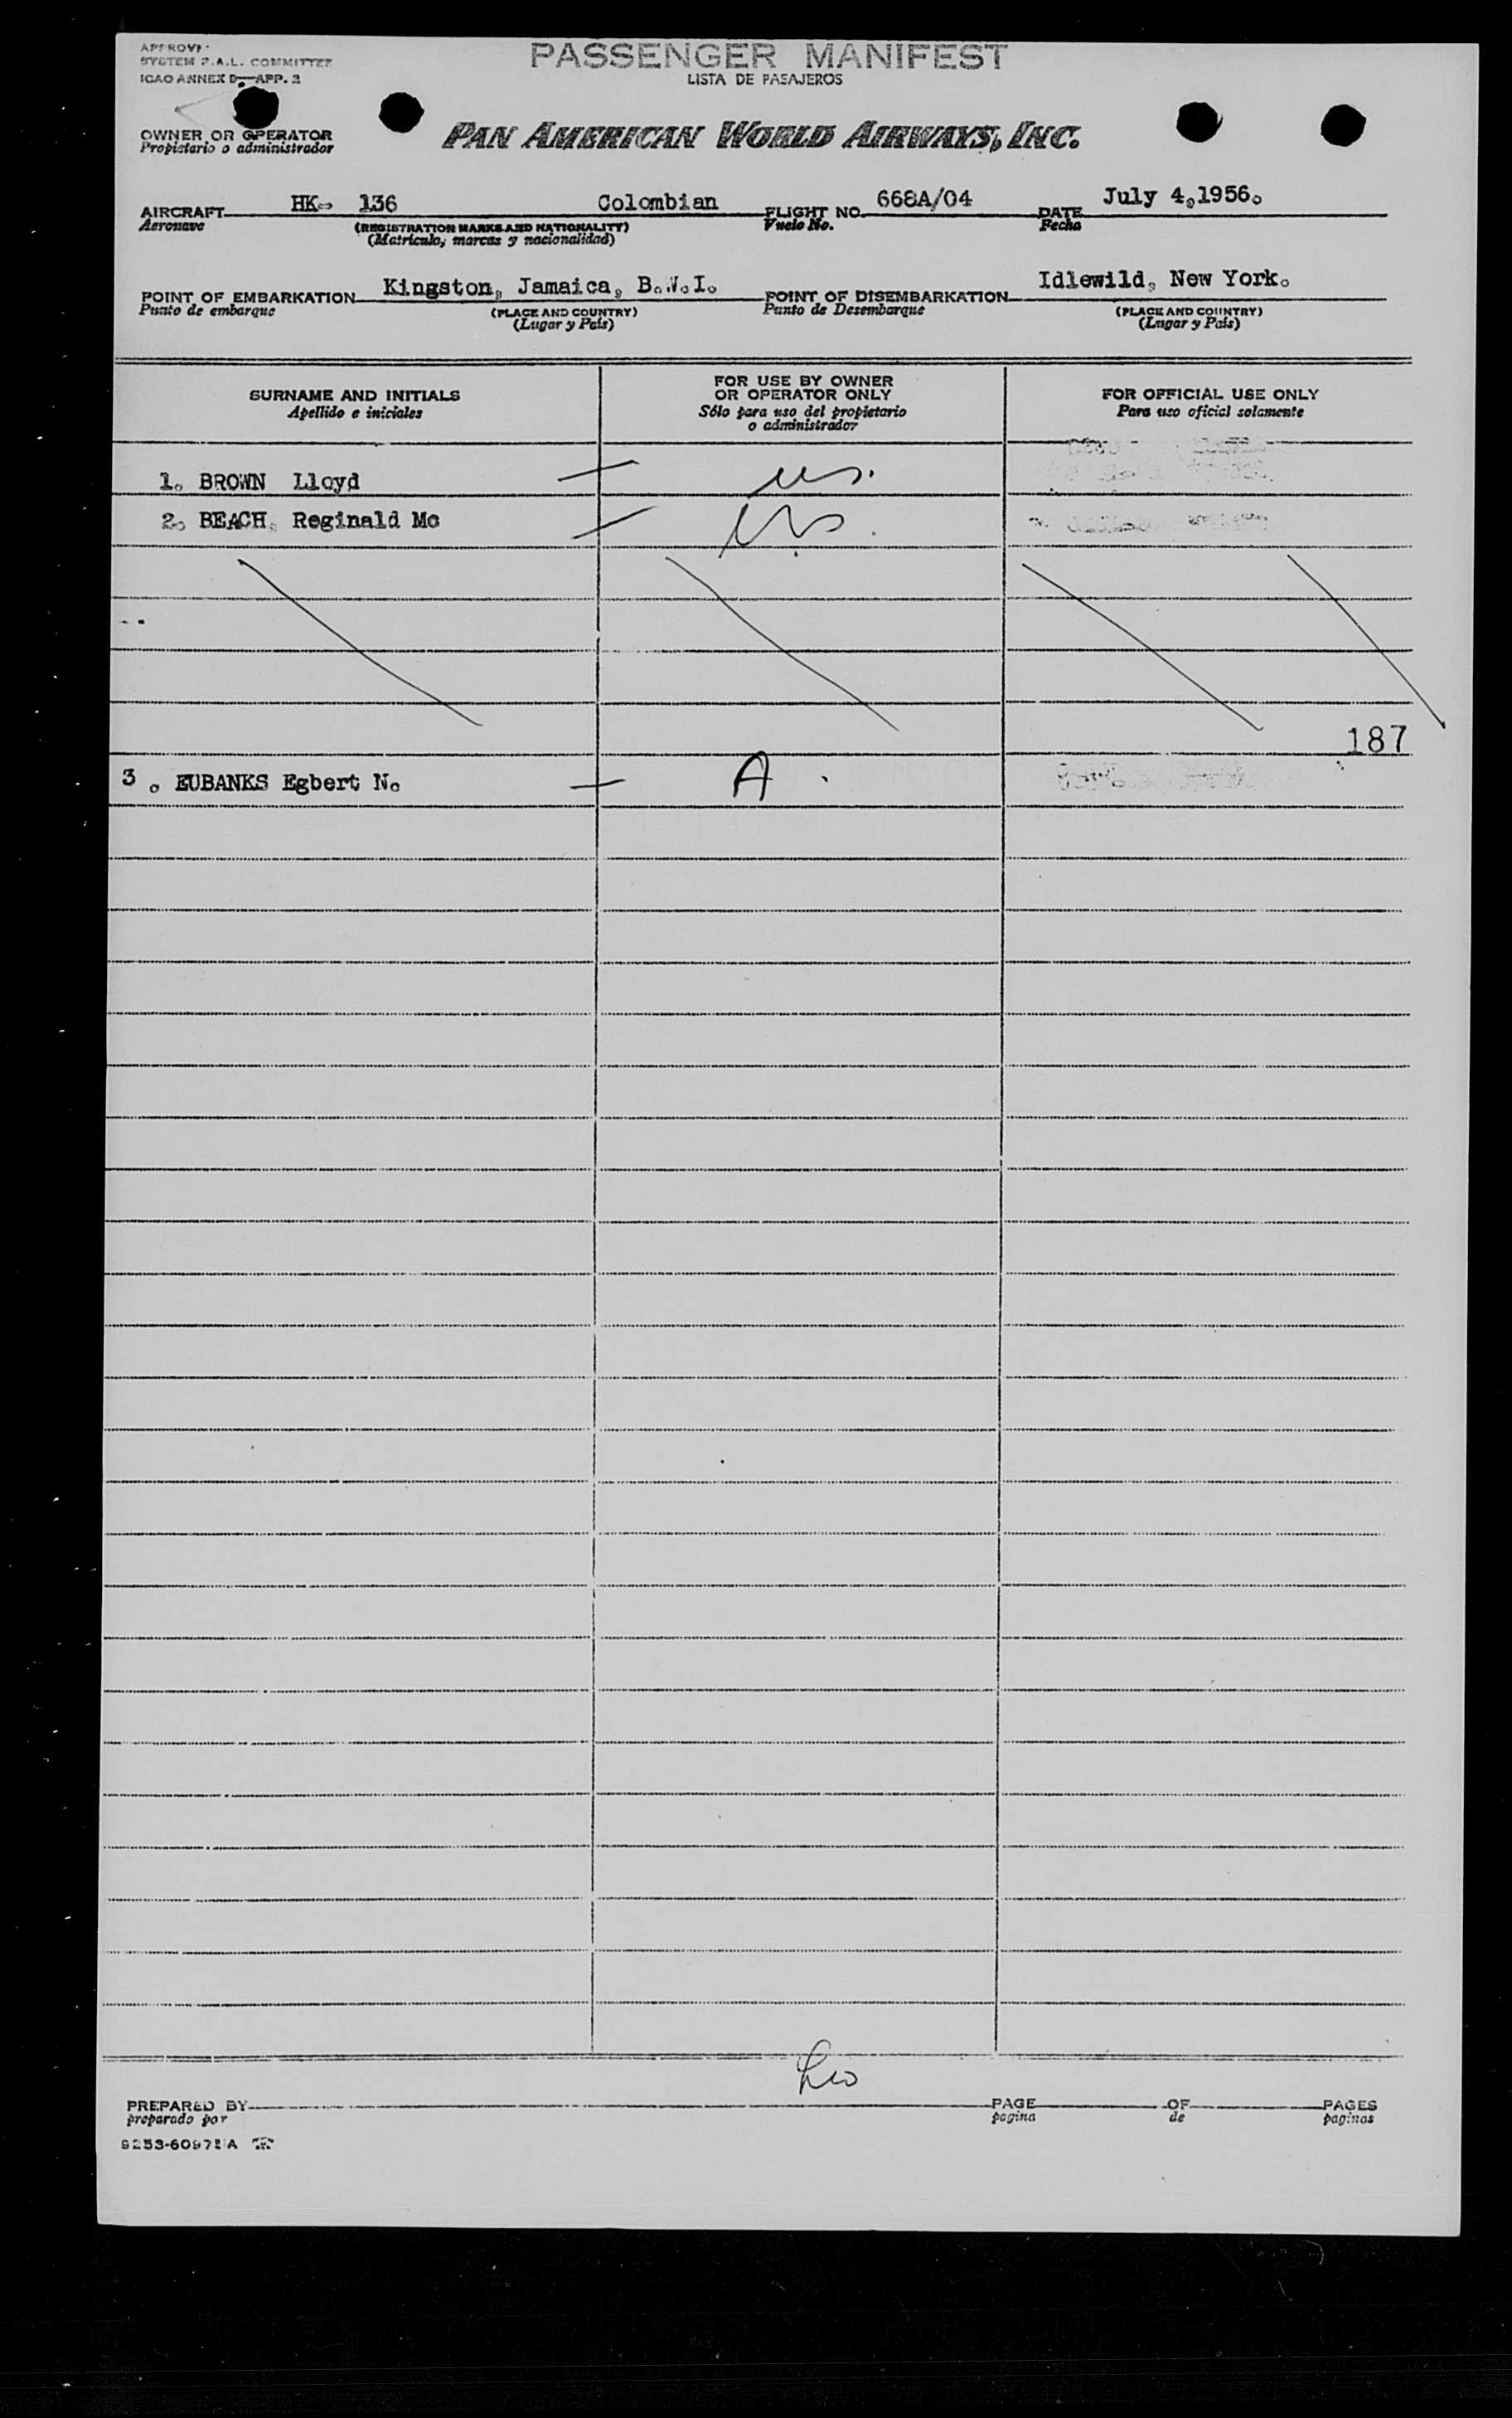 PASSENGER MANIFEST
LISTA DE PASAJEROS
SYSTEM F.A.L. COMMITTEE
ICAO ANNEX 9—APP. 2
OWNER OR OPERATOR
Propietario o administrador
PAN AMERICAN WORLD AIRWAYS, INC.
AIRCRAFT HK- 136 Colombian FLIGHT NO. 668A/04 DATE July 4,1956.
Aeronave (REGISTRATION MARKS AND NATIONALITY) Vuelo No. Fecha
(Matrícula, marcas y nacionalidad)
POINT OF EMBARKATION Kingston, Jamaica, B.W.I. POINT OF DISEMBARKATION Idlewild, New York.
Punto de embarque (PLACE AND COUNTRY) Punto de Desembarque (PLACE AND COUNTRY)
(Lugar y País) (Lugar y País)
SURNAME AND INITIALS
Apellido e iniciales
FOR USE BY OWNER
OR OPERATOR ONLY
Sólo para uso del propietario
o administrador
FOR OFFICIAL USE ONLY
Para uso oficial solamente
1. BROWN Lloyd us.
2. BEACH, Reginald Mc us.
187
3. EUBANKS Egbert N. A.
PREPARED BY PAGE OF PAGES
preparado por pagina de paginas